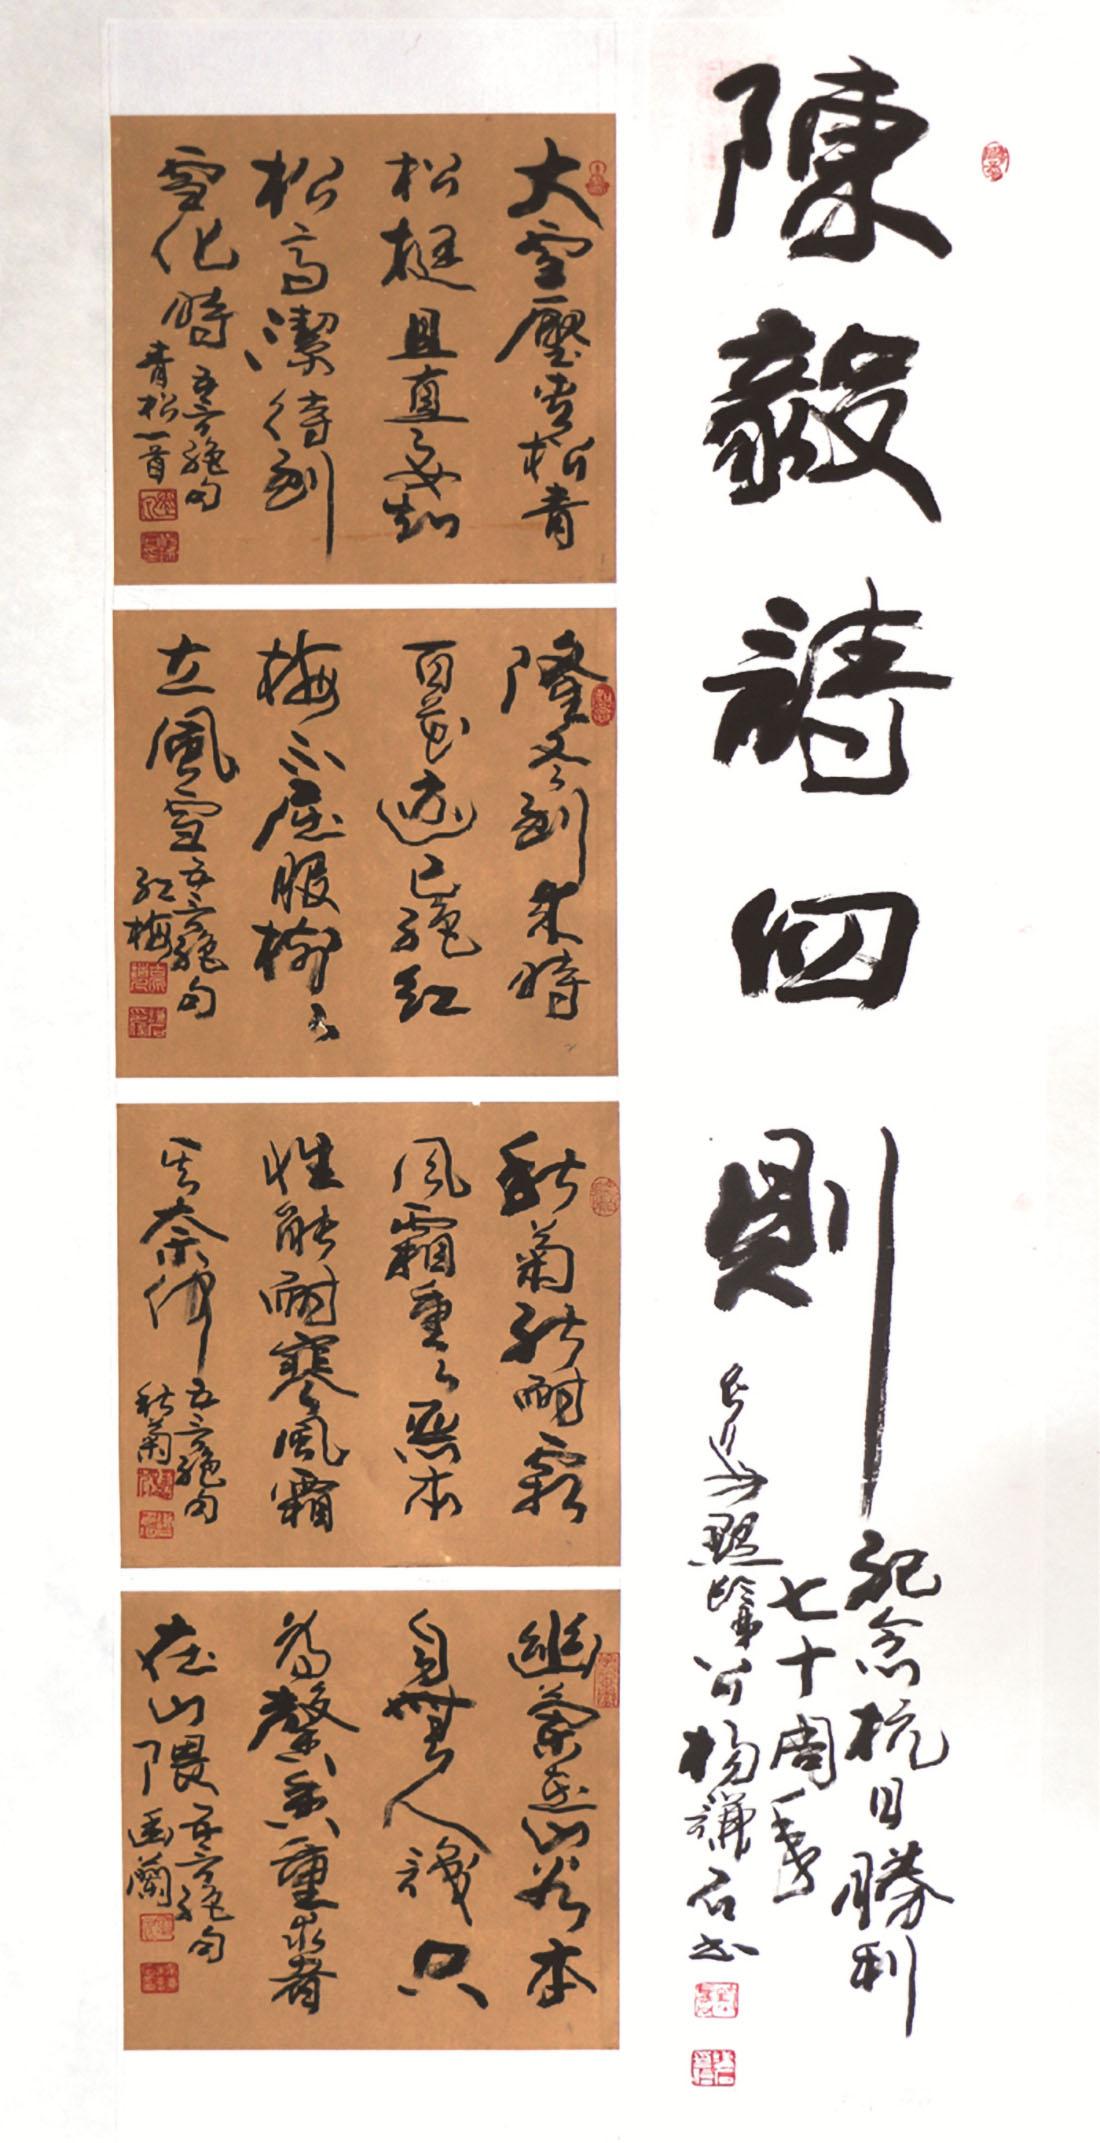 陳毅詩四則
紀念抗日勝利
七十周年
楊謙石书
大雪壓青松青
松挺且直要知
松高潔待到
雪化時
五言絕句
青松一首
隆冬到来時
百花迹已絕红
梅不屈服樹々
立風雪
五言絕句
红梅
秋菊能耐霜
风霜重々惡本
性能耐寒風霜
其奈何
五言絕句
秋菊
幽蘭在山谷本
自無人識只
為馨香重求者
在山隈
五言絕句
幽蘭